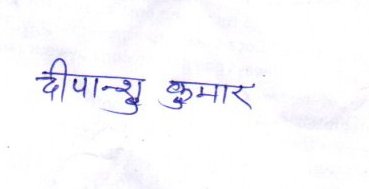 दीपान्शु कुमार